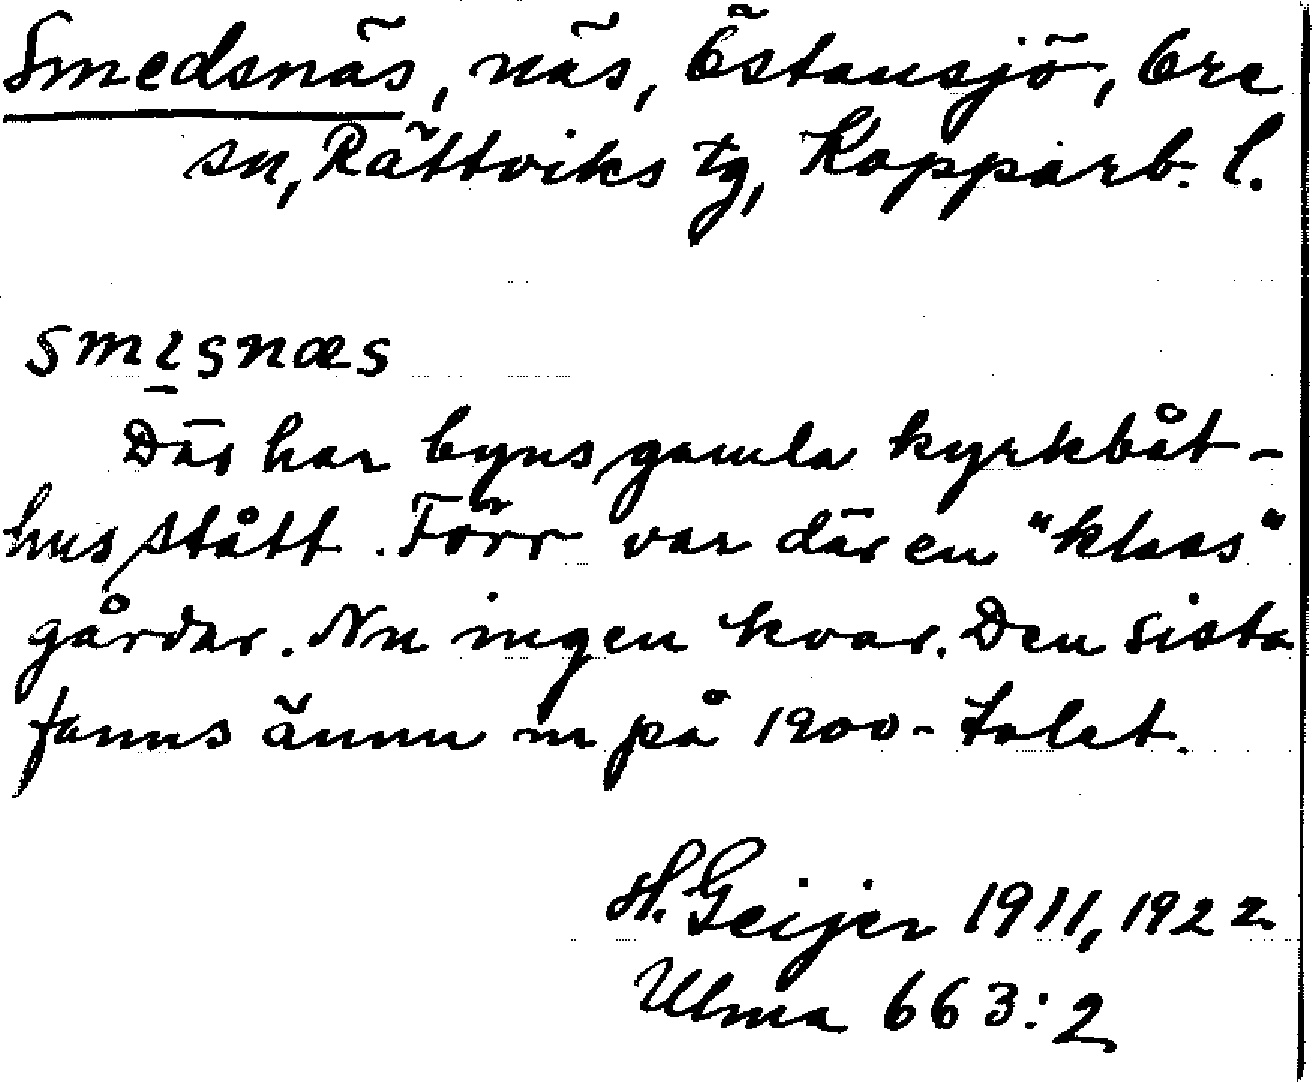 Smedsnäs, näs, Östansjö, Ore
sn, Rättviks tg, Kopparb. l.
smɩ̱snæs
Där har byns gamla kyrkbåt-
hus stått. Förr var där en "klass"
gårdar. Nu ingen kvar. Den sista
fanns ännu in på 1900-talet.
H. Geijer 1911, 1922
Ulma 663:2